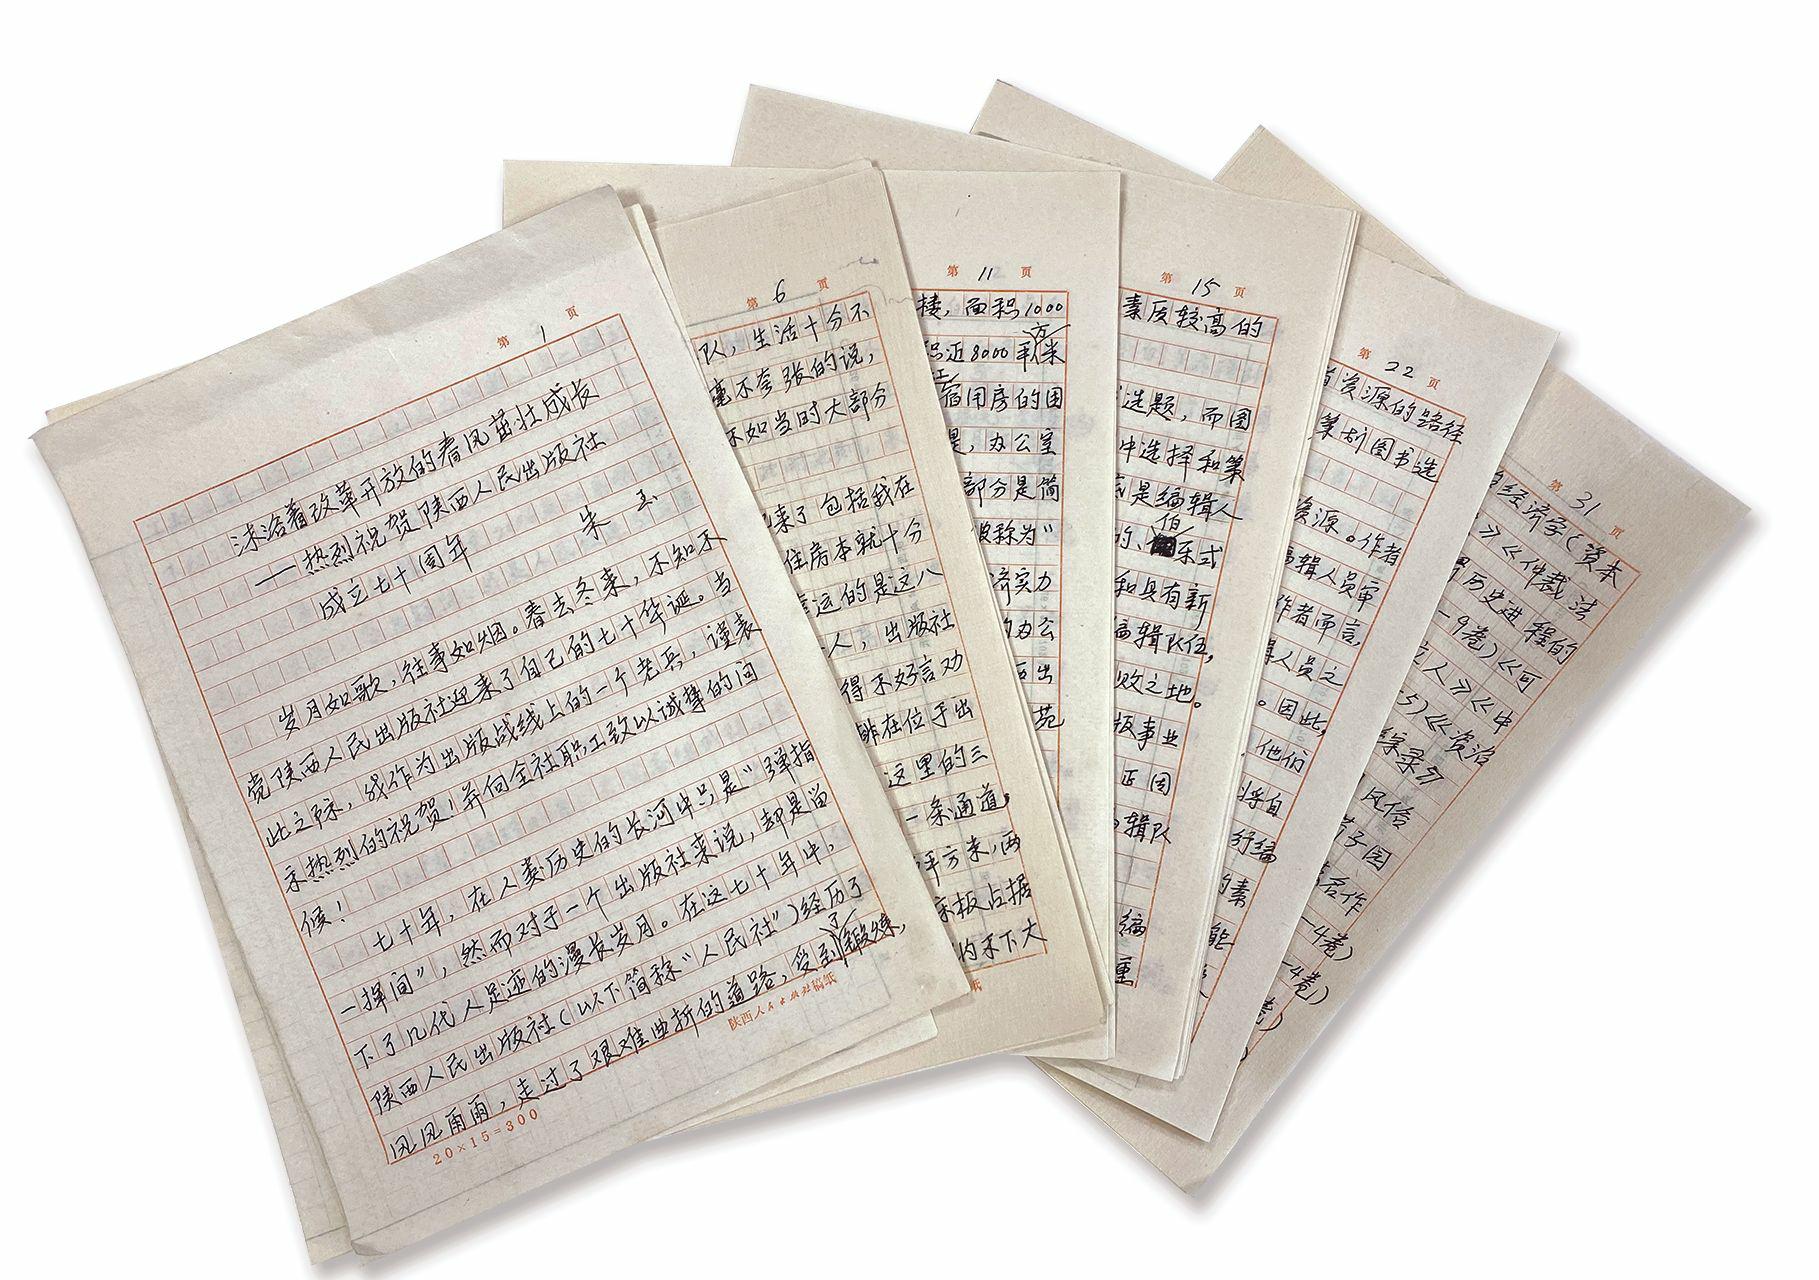 第 1 页
沐浴着改革开放的春风茁壮成长
——热烈祝贺陕西人民出版社
成立七十周年
朱玉
岁月如歌，往事如烟。春去冬来，不知不
觉陕西人民出版社迎来了自己的七十华诞。当
此之际，我作为出版战线上的一个老兵，谨表
示热烈的祝贺！并向全社职工致以诚挚的问
候！
七十年，在人类历史的长河中只是“弹指
一挥间”，然而对于一个出版社来说，却是留
下了几代人足迹的漫长岁月。在这七十年中，
陕西人民出版社（以下简称“人民社”）经历了
风风雨雨，走过了艰难曲折的道路，受到了锻炼，
20×15=300
陕西人民出版社稿纸
第 6 页
队，生活十分不
毫不夸张的说，
不如当时大部分
来了包括我在
住房本就十分
运的是这八
人，出版社
得不好言劝
能在位于出
这里的三
一条通道，
平方米，两
床板占据
均不下大
纸
第 11 页
楼，面积1000
积近8000平方米
宿用房的困
是，办公室
部分是简
被称为“
济实力
办公
出
苑
第 15 页
素质较高的
选题，而图
中选择和策
是编辑人
的、伯乐式
和具有新
编辑队伍，
败之地。
版事业
正因
辑队
编
重
第 22 页
资源的路径
策划图书选
资源。作者
编辑人员审
作者而言，
辑人员之
。因此，
他们
将自
行编
的素
能
第 31 页
经济学（资本
》《仲裁法
历史进程的
-9卷）《可
人》《中
5）《资治
综录》
风俗
子园
名作
-4卷）
-4卷）
卷）